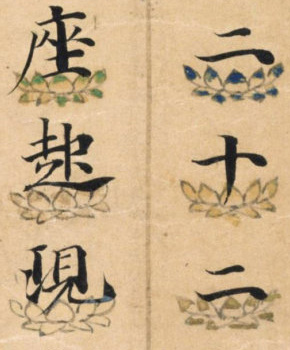 二十二
座起現